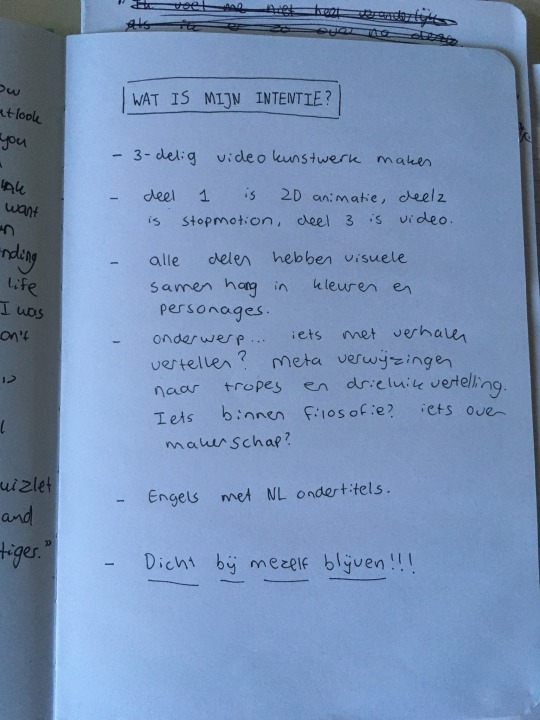 "Ik voel me niet heel veranderlijk
als ik er zo over na denk
ow
utlook
you
want
nding
life
I was
on't
uizlet
and
tiger."
WAT IS MIJN INTENTIE?
- 3-delig videokunstwerk maken
- deel 1 is 2D animatie, deel2
is stopmotion, deel 3 is video.
- alle delen hebben visuele
samen hang in kleuren en
personages.
- onderwerp... iets met verhalen
vertellen? meta verwijzingen
naar tropes en drieluik vertelling.
Iets binnen filosofie? iets over
makerschap?
- Engels met NL ondertitels.
- Dicht bij mezelf blijven!!!